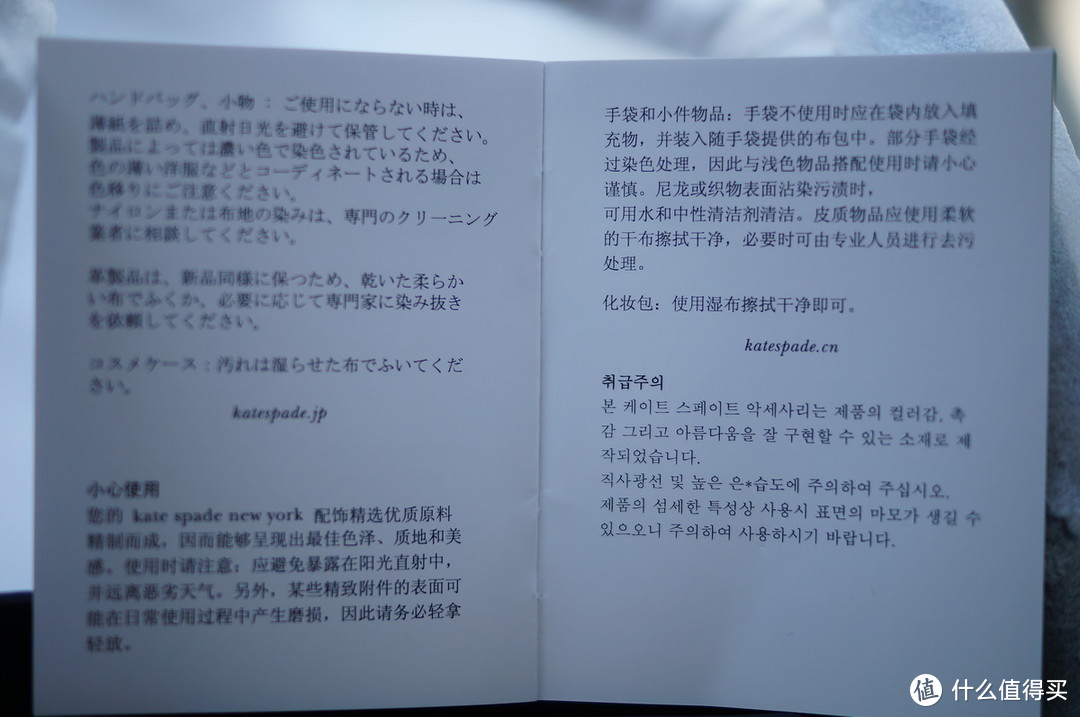 ハンドバッグ、小物 : ご使用にならない時は、
薄紙を詰め、直射日光を避けて保管してください。
製品によっては濃い色で染色されているため、
色の薄い洋服などとコーディネートされる場合は
色移りにご注意ください。
ナイロンまたは布地の染みは、専門のクリーニング
業者に相談してください。
革製品は、新品同様に保つため、乾いた柔らか
い布でふくか、必要に応じて専門家に染み抜き
を依頼してください。
コスメケース : 汚れは湿らせた布でふいてくだ
さい。
katespade.jp
小心使用
您的 kate spade new york 配饰精选优质原料
精制而成，因而能够呈现出最佳色泽、质地和美
感。使用时请注意：应避免暴露在阳光直射中，
并远离恶劣天气。另外，某些精致附件的表面可
能在日常使用过程中产生磨损，因此请务必轻拿
轻放。
手袋和小件物品：手袋不使用时应在袋内放入填
充物，并装入随手袋提供的布包中。部分手袋经
过染色处理，因此与浅色物品搭配使用时请小心
谨慎。尼龙或织物表面沾染污渍时，
可用水和中性清洁剂清洁。皮质物品应使用柔软
的干布擦拭干净，必要时可由专业人员进行去污
处理。
化妆包：使用湿布擦拭干净即可。
katespade.cn
취급주의
본 케이트 스페이트 악세사리는 제품의 컬러감, 촉
감 그리고 아름다움을 잘 구현할 수 있는 소재로 제
작되었습니다.
직사광선 및 높은 은*습도에 주의하여 주십시오.
제품의 섬세한 특성상 사용시 표면의 마모가 생길 수
있으오니 주의하여 사용하시기 바랍니다.
值 什么值得买